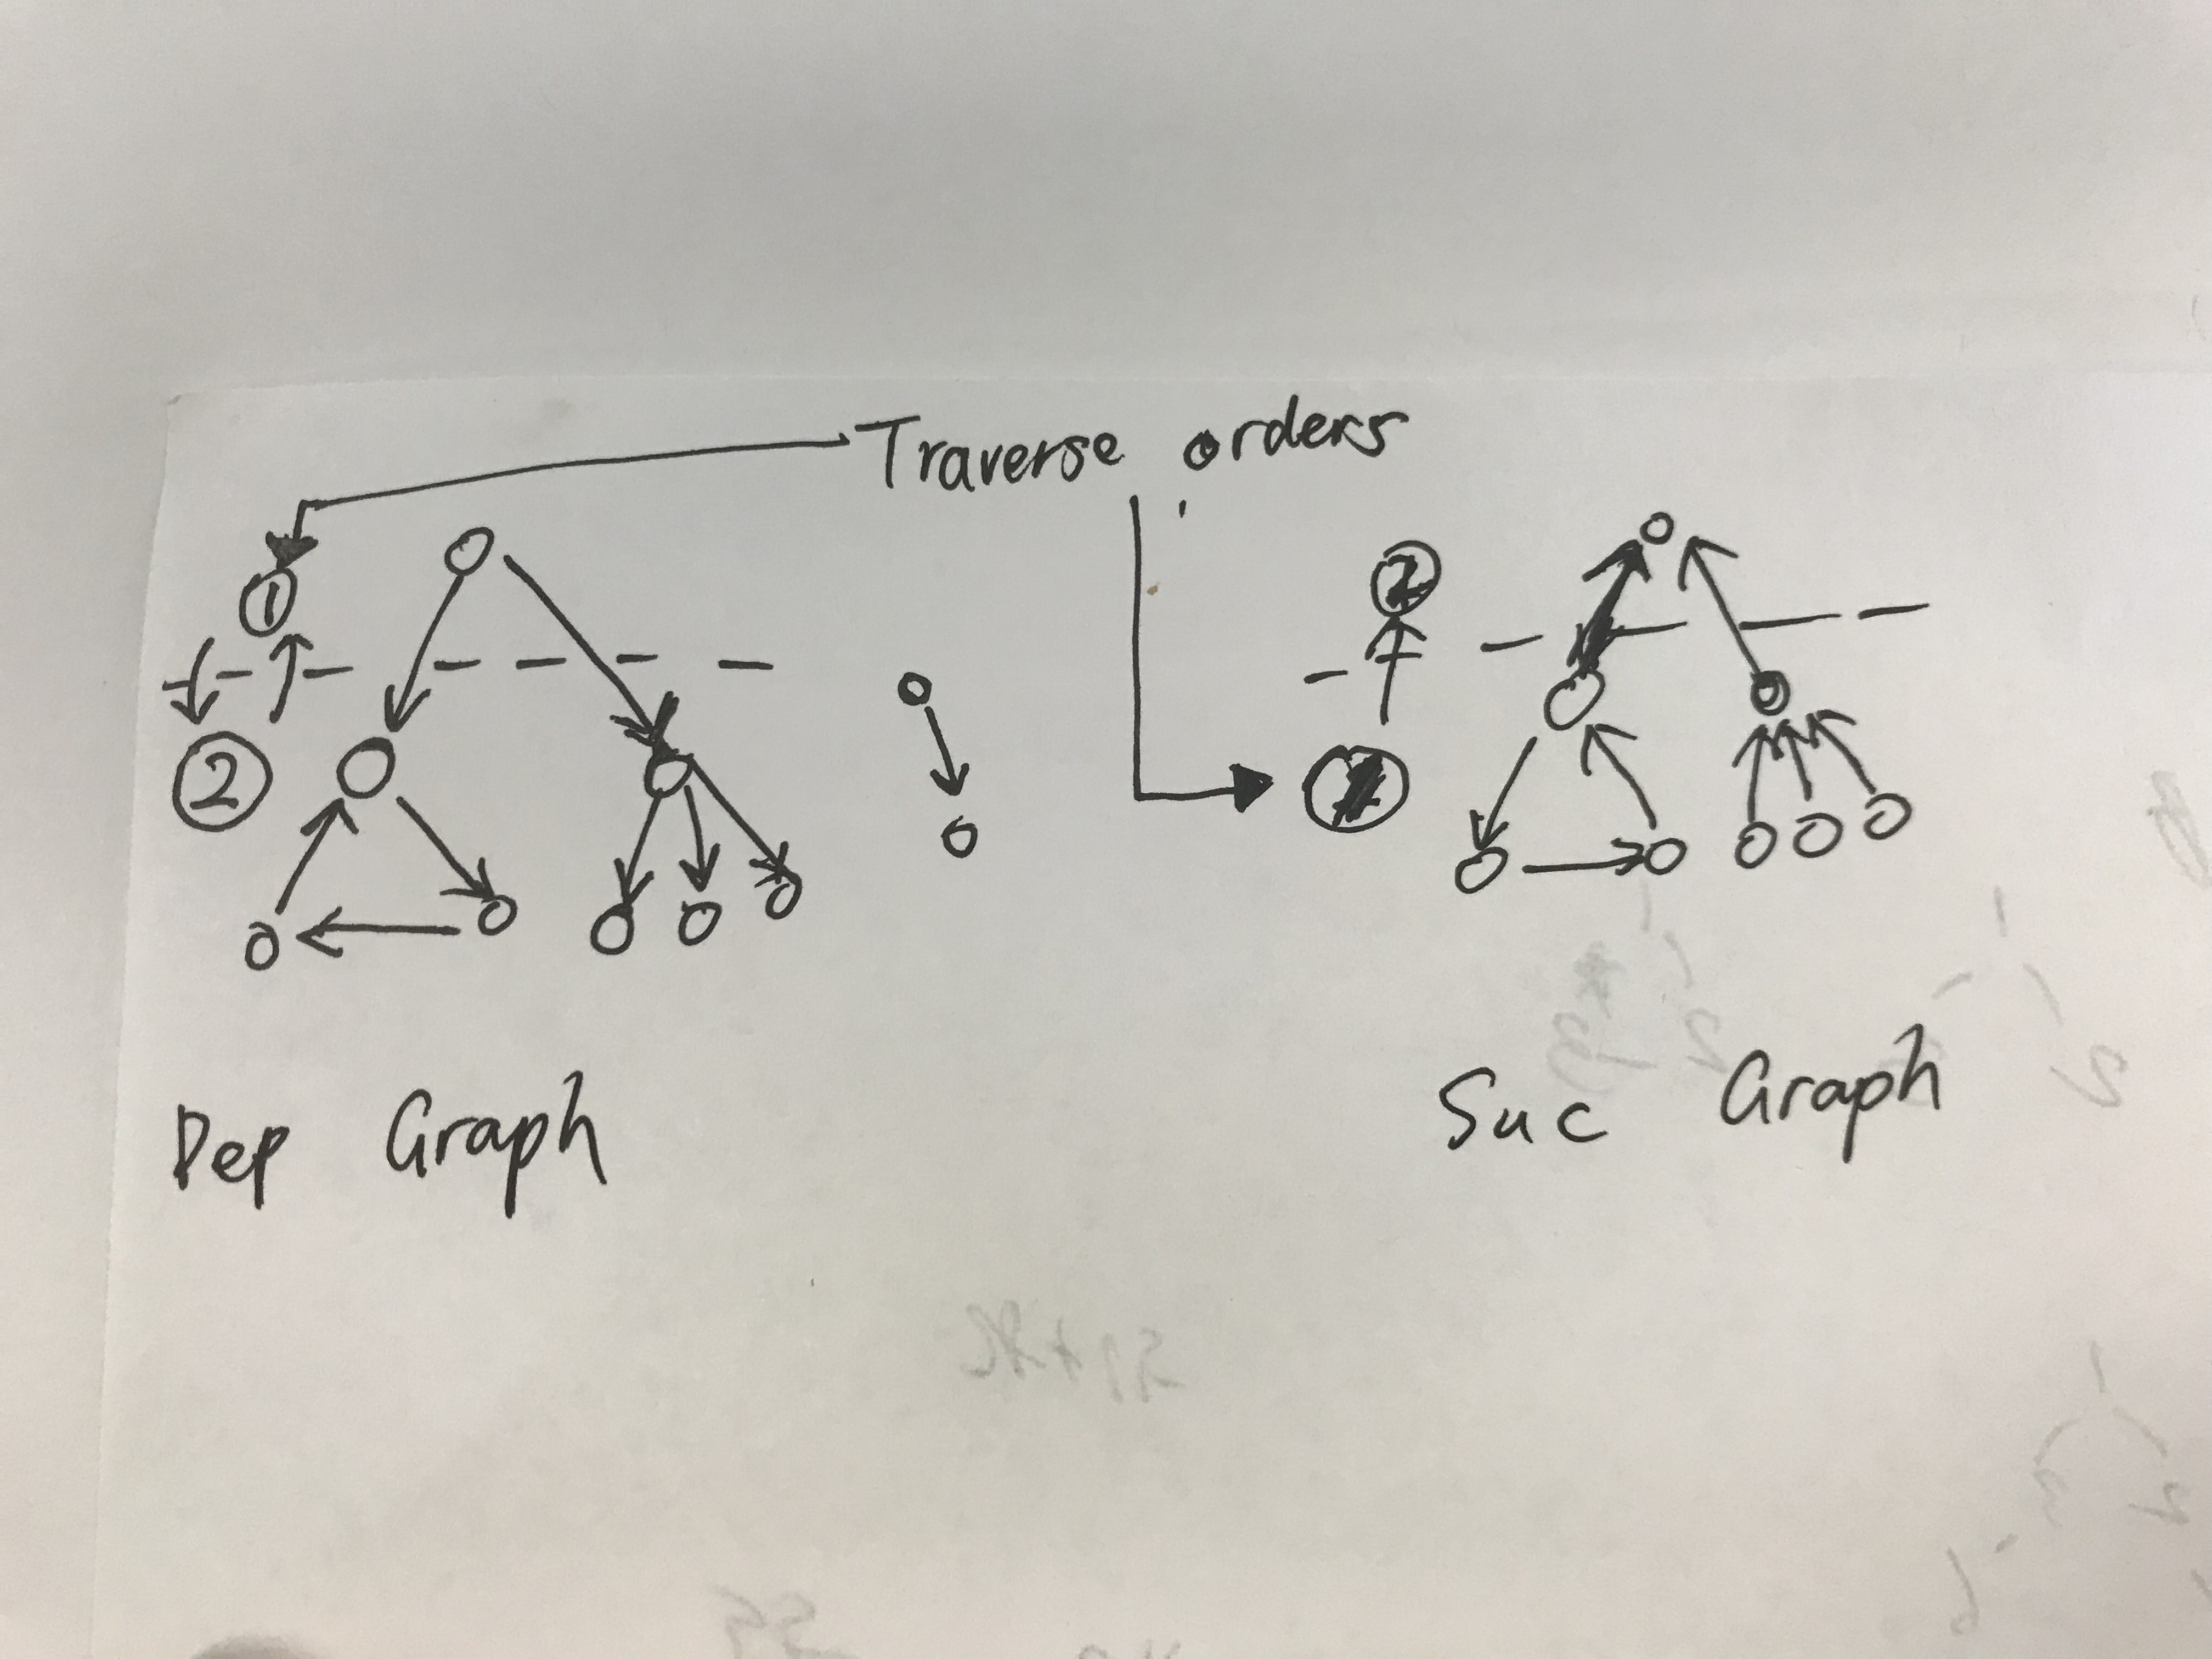 Traverse orders
①
②
②
Dep Graph
Suc Graph